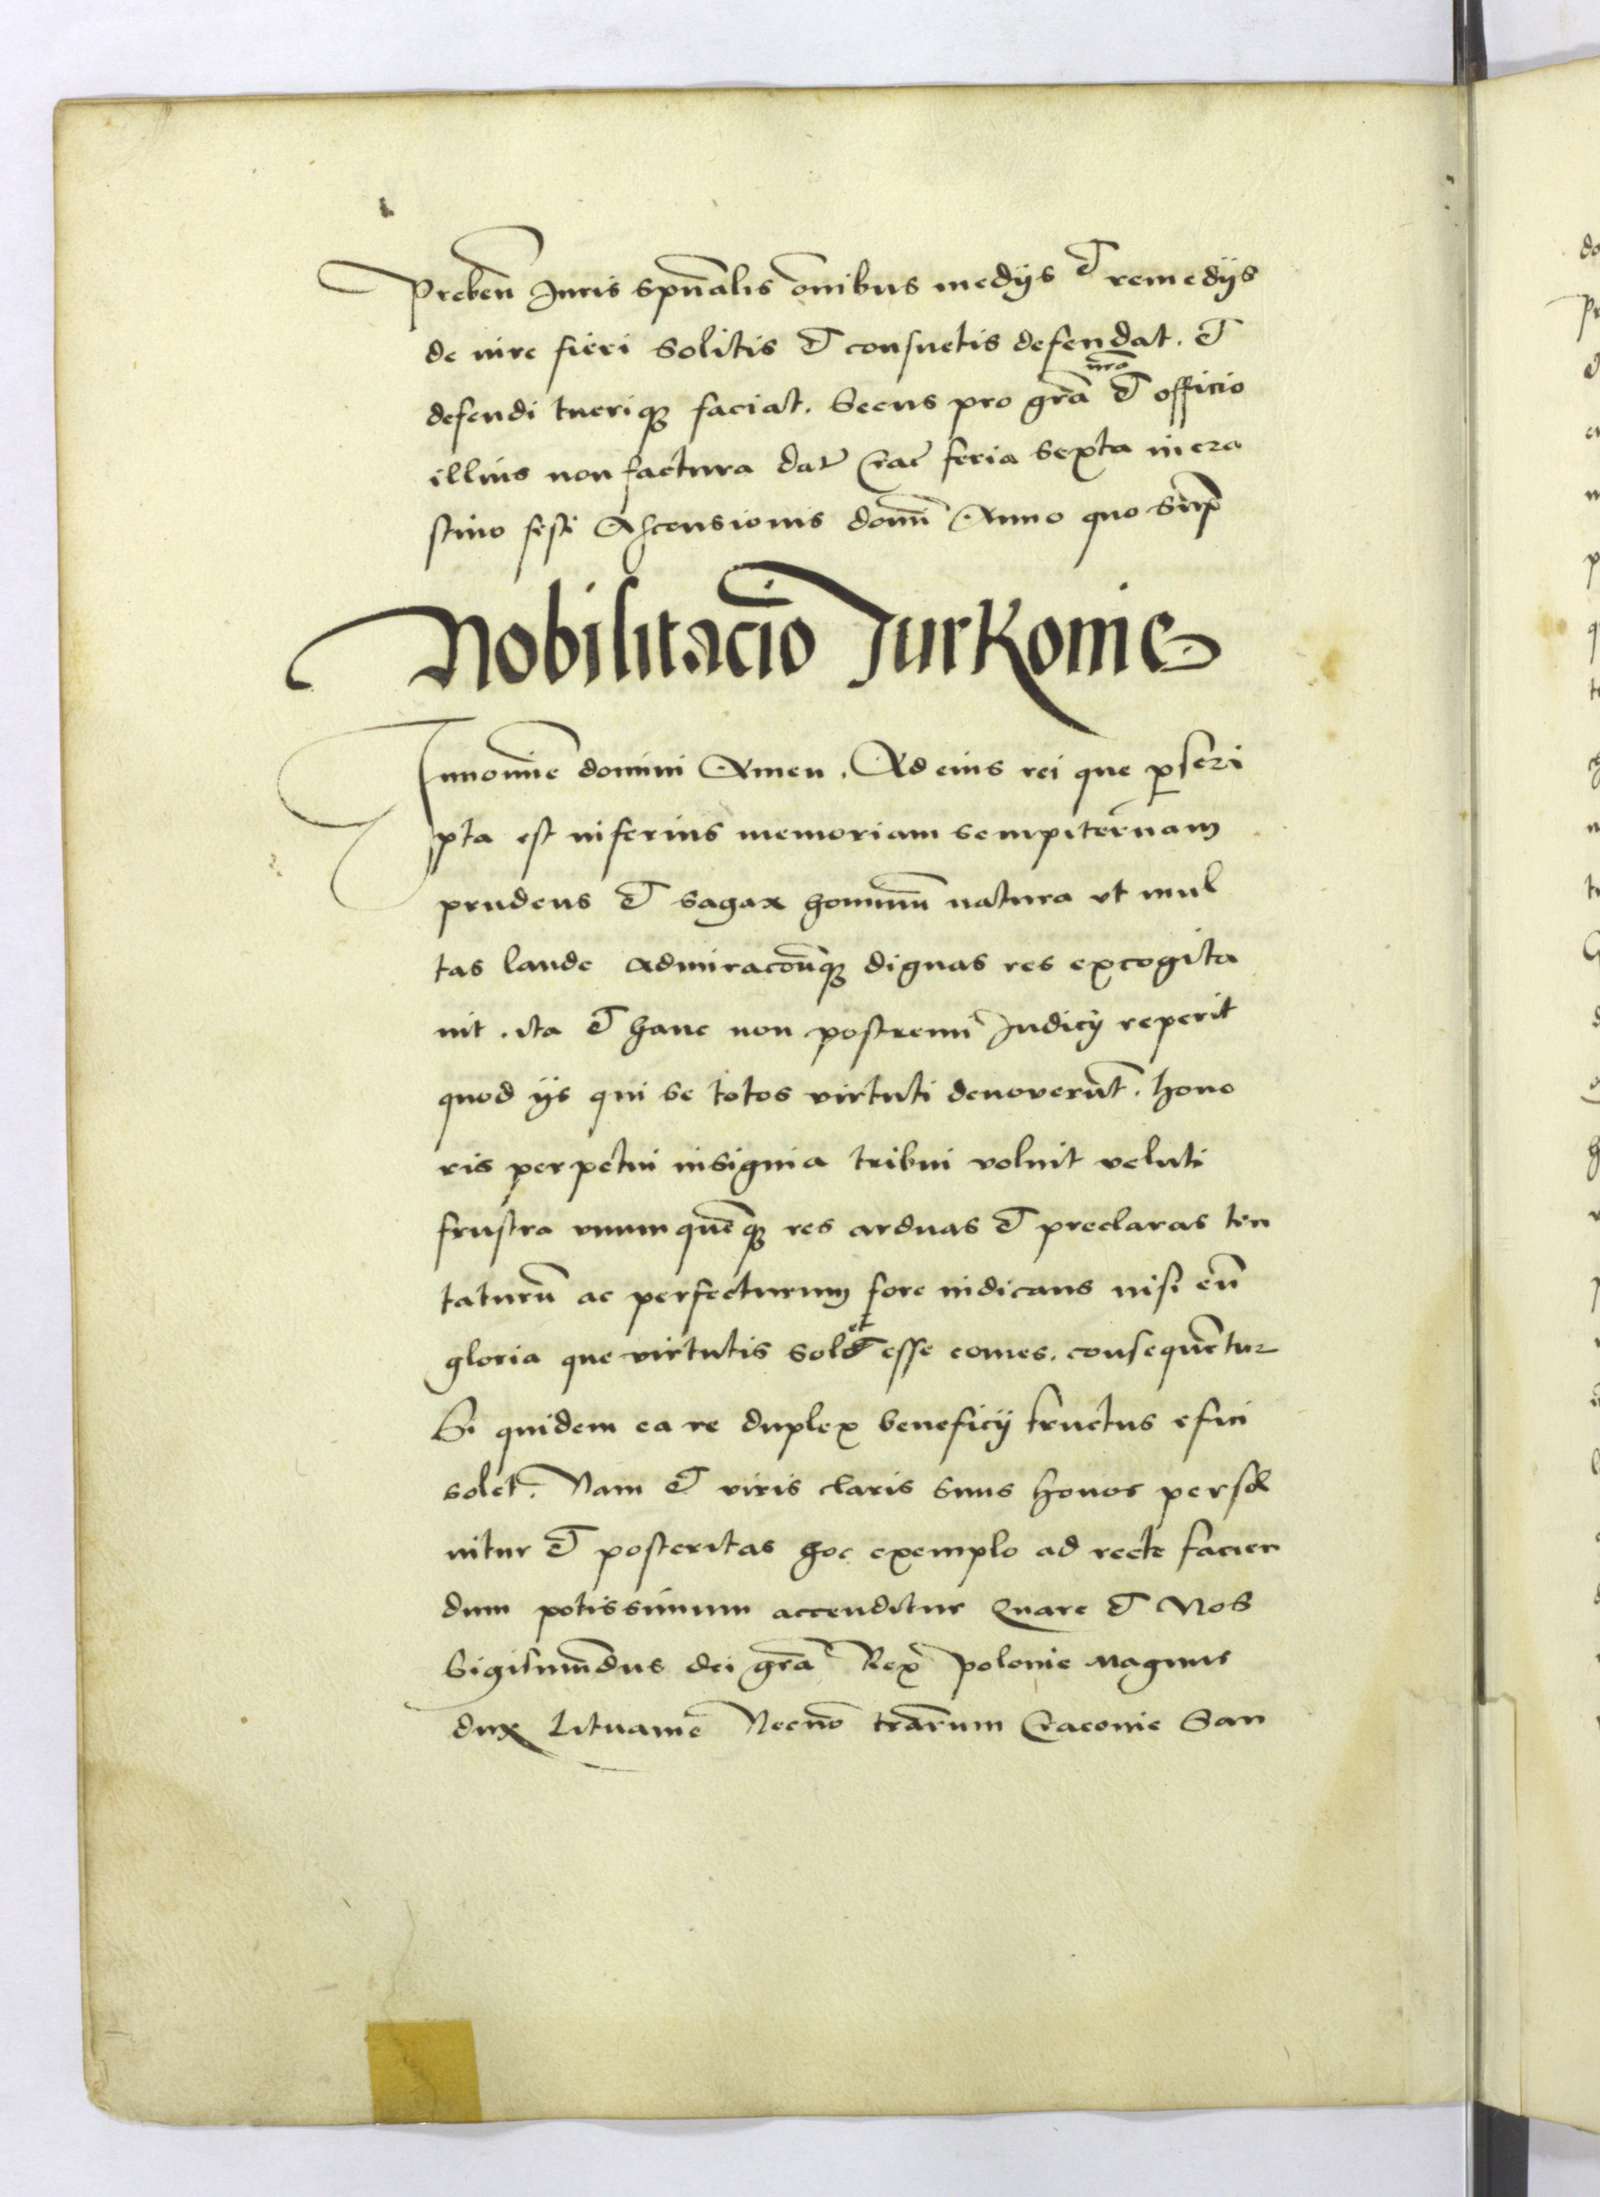 Preben̄ Iuris spūalis om̄ibus medijs et remedijs
de iure fieri solitis et consuetis defendat. et
defendi tueriq3 faciat. secus pro gr̄a nr̄a et officio
illius non factura dat̄ Crac̄ feria sexta in cra
stino festi Ascensionis domī Anno quo sup̄
Nobilitacio Iurkonie
In nomīe domini Amen. Ad eius rei que p̱scri
pta est inferius memoriam sempiternam
prudens et sagax hominū natura vt mul
tas laude admiracōneq3 dignas res excogita
uit. ita et hanc non postremi Iudicij reperit
quod ijs qui se totos virtuti deuouerūt. hono
ris perpetui insignia tribui voluit veluti
frustra vnum quēq3 res arduas et preclaras ten
taturū ac perfecturum fore iudicans nisi eū
gloria que virtutis solet esse comes. consequētur
Si quidem ea re duplex beneficij fructus efici
solet. Nam et viris claris suus honos persol
uitur et posteritas hoc exemplo ad recte facien
dum potissimum accenditur Quare et Nos
Sigismūdus dei gr̄a Rex polonie Magnus
dux Lituanie Necnō tr̄arum Cracouie San